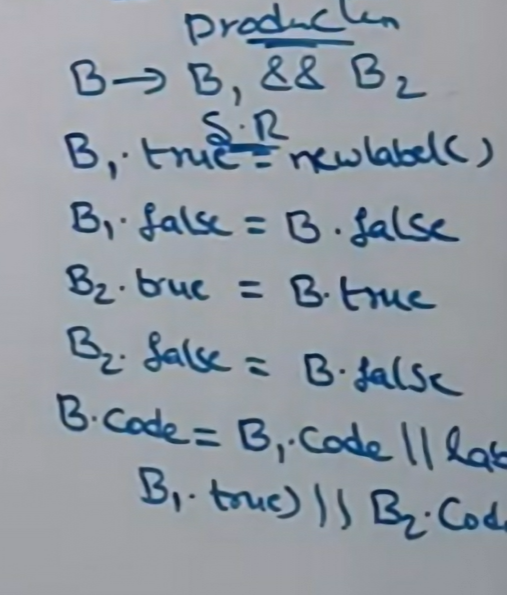 Production
B → B₁ && B₂
S.R
B₁.true = newlabel()
B₁.false = B.false
B₂.true = B.true
B₂.false = B.false
B.code = B₁.code || lab
B₁.true) || B₂.Cod